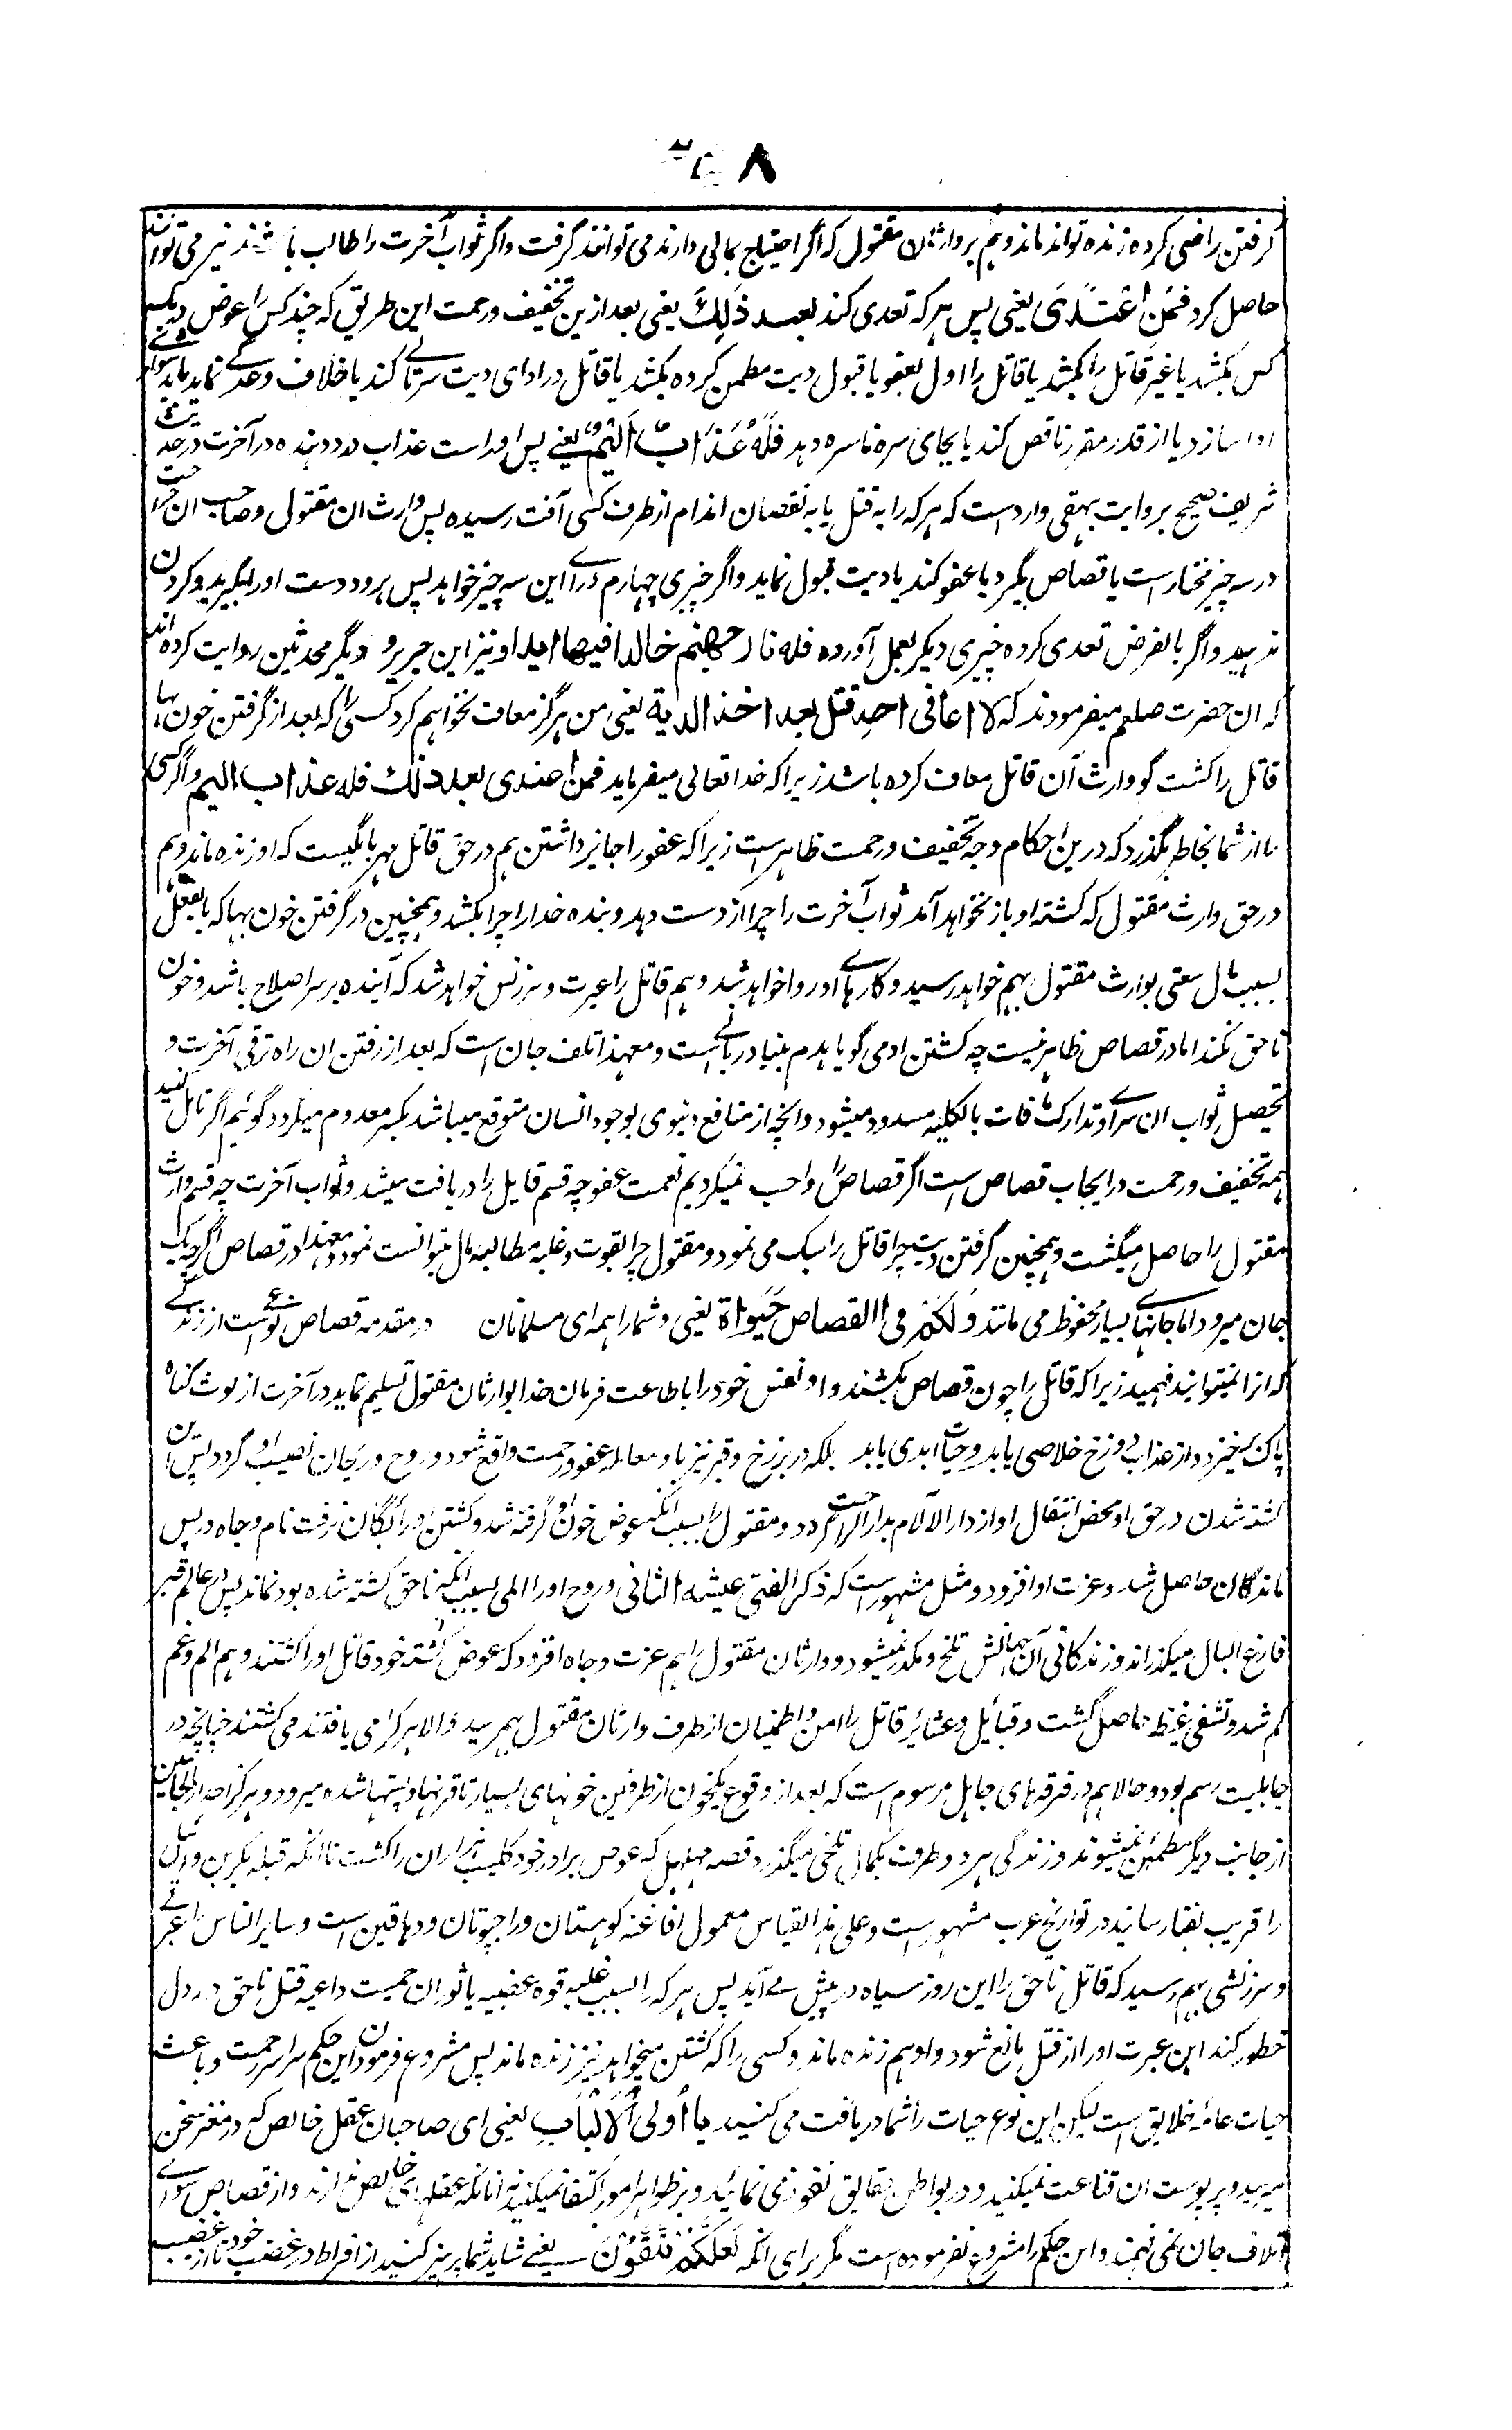 گرفتن راضی کرده زنده تواند ماند و هم بر وارثان مقتول که اگر احتیاج بمالی دارند می توانند گرفت و اگر ثواب آخرت را طالب باشند نیز می توانند
حاصل کرد فَمَنِ اعْتَدَىٰ یعنی پس هر که تعدی کند بعد ذَلِكَ یعنی بعد ازین تخفیف و رحمت این طریق که چند کس را عوض یک
کس بکشد یا غیر قاتل را بکشد یا قاتل را اول بعفو یا قبول دیت مطمئن کرده بکشد یا قاتل در ادای دیت سرتابی کند یا خلاف وعدگی نماید
ادا سازد یا از قدر مقرر ناقص کند یا بجای سره ناسره دهد فَلَهُ عَذَابٌ اَلِیْمٌ یعنی پس او راست عذاب درد دهنده در آخرت در حدیث
شریف صحیح بروایت بیهقی وارد است که هر که را به قتل یا به نقصان اندام از طرف کسی آفت رسیده پس وارث ان مقتول و صاحب ان جراحت
در سه چیز مختار است یا قصاص بگیرد یا عفو کند یا دیت قبول نماید و اگر چیزی چهارم ورای این سه چیز خواهد پس هر دو دست او را بگیرید و کردن
ندهید و اگر بالفرض تعدی کرده چیزی دیگر بعمل آورده فله نار جهنم خالدا فیها ابدا و نیز ابن جریر و دیگر محدثین روایت کرده اند
که ان حضرت صلعم میفرمودند که لا اعافی احد قتل بعد اخذ الدیة یعنی من هرگز معاف نخواهم کرد کسی را که بعد از گرفتن خون بها
قاتل را کشت گو وارث آن قاتل معاف کرده باشد زیرا که خدا تعالی میفرماید فمن اعتدی بعد ذلك فله عذاب الیم و اگر کسی
را از شما بخاطر بگذرد که درین احکام وجه تخفیف و رحمت ظاهر است زیرا که عفو را جایز داشتن هم در حق قاتل مهربانگیست که او زنده ماند و هم
در حق وارث مقتول که کشته او باز نخواهد آمد ثواب آخرت را چرا از دست دهد و بنده خدا را چرا بکشد و همچنین در گرفتن خون بها که بالفعل
بسبب مال بوارث مقتول بهم خواهد رسید و کارهای او روا خواهد شد و هم قاتل را عبرت و سرزنش خواهد شد که آینده بر سر اصلاح باشد و خون
ناحق نکند اما در قصاص ظاهر نیست چه کشتن ادمی گویا هدم بنیاد ربانی است و معهذا تلف جان است که بعد از رفتن ان راه ترقی آخرت و
تحصیل ثواب ان سرای و تدارک مافات بالکلیه مسدود میشود و انچه از منافع دنیوی بوجود انسان متوقع میباشد یکسر معدوم میگردد گوئیم اگر تامل کنید
همه تخفیف و رحمت در ایجاب قصاص است اگر قصاص را واجب نمیکردیم نعمت عفو چه قسم قاتل را دریافت میشد و ثواب آخرت چه قسم وارث
مقتول را حاصل میگشت و همچنین گرفتن دیت چرا قاتل را سبک می نمود و مقتول چرا بقوت و غلبه مطالبه مال میتوانست نمود و معهذا در قصاص اگرچه یک
جان میرود اما جانهای بسیار محفوظ می مانند وَلَكُمْ فِی الْقِصَاصِ حَیٰوةٌ یعنی و شما را همه ای مسلمانان در مقدمه قصاص نوعی است از زندگی
که انرا نمیتوانید فهمید زیرا که قاتل را چون قصاص بکشند و او نفس خود را با طاعت فرمان خدا بوارثان مقتول تسلیم نماید در آخرت از لوث گناه
پاک برخیزد و از عذاب دوزخ خلاصی یابد و حیات ابدی یابد بلکه در برزخ و قبر نیز با او معامله عفو و رحمت واقع شود و روح و ریحان نصیب او گردد پس این
کشته شدن در حق او محض انتقال او از دار الآلام بدار الراحت گردد و مقتول را بسبب انکه عوض خون او گرفته شد و کشتن او رایگان نرفت نام و جاه در پس
ماندگان حاصل شد و عزت او افزود و مثل مشهور است که ذکر الفتی عیشه الثانی و روح او را المی بسبب انکه ناحق کشته شده بود نماند پس در عالم قبر
فارغ البال میگذراند و زندگانی آن جهانش تلخ و مکدر نمیشود و وارثان مقتول را هم عزت و جاه افزود که عوض کشته خود قاتل او را کشتند و هم الم و غم
کم شد و تشفی غیظ حاصل گشت و قبایل و عشایر قاتل را امن و اطمنیان از طرف وارثان مقتول بهم رسید والا هر کرا می یافتند می کشتند چنانچه در
جاهلیت رسم بود و حالا هم در فرقه های جاهل مرسوم است که بعد از وقوع یکخون از طرفین خونهای بسیار تا قرنها و پشتها شده میرود و هرگز احد الجانبین
از جانب دیگر مطمئن نمیشوند و زندگی هر دو طرف بکمال تلخی میگذرد قصه مهلهل که عوض برادر خود کلیب هزاران را کشت تا آنکه قبیله بکر بن وائل
را قریب بفنا رسانید در تواریخ عرب مشهور است و علی هذا القیاس معمول افاغنه کوهستان و راجپوتان و دهاقین است و سایر الناس را عبرتی
و سرزنشی بهم رسید که قاتل ناحق را این روز سیاه در پیش می آید پس هر که را بسبب غلبه قوه غضبیه یا ثوران حمیت داعیه قتل ناحق در دل
خطور کند این عبرت او را از قتل مانع شود و او هم زنده ماند و کسی را که کشتن میخواهد نیز زنده ماند پس مشروع فرمودن این حکم سراسر رحمت و باعث
حیات عامه خلایق است لیکن این نوع حیات را شما دریافت می کنید یا اُولِی الْاَلْبَابِ یعنی ای صاحبان عقل خالص که در مغز سخن
میرسید و بر پوست ان قناعت نمیکنید و در بواطن حقایق نفوذ می نمائید و بر ظواهر امور اکتفا نمیکنید نه آنانکه عقلهای خالص ندارند و از قصاص سوای
اتلاف جان نمی فهمند و این حکم را مشروع نفرموده است مگر برای انکه لَعَلَّكُمْ تَتَّقُوْنَ یعنی شاید شما پرهیز کنید از افراط در غضب